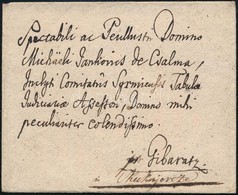 Spectabili ac Perillustri Domino
Michaeli Jankovics de Csalma,
Inclyti Comitatus Syrmiensis Tabulae
Judiciariae Assessori, Domino mihi
peculiariter colendissimo.
Gibaratz